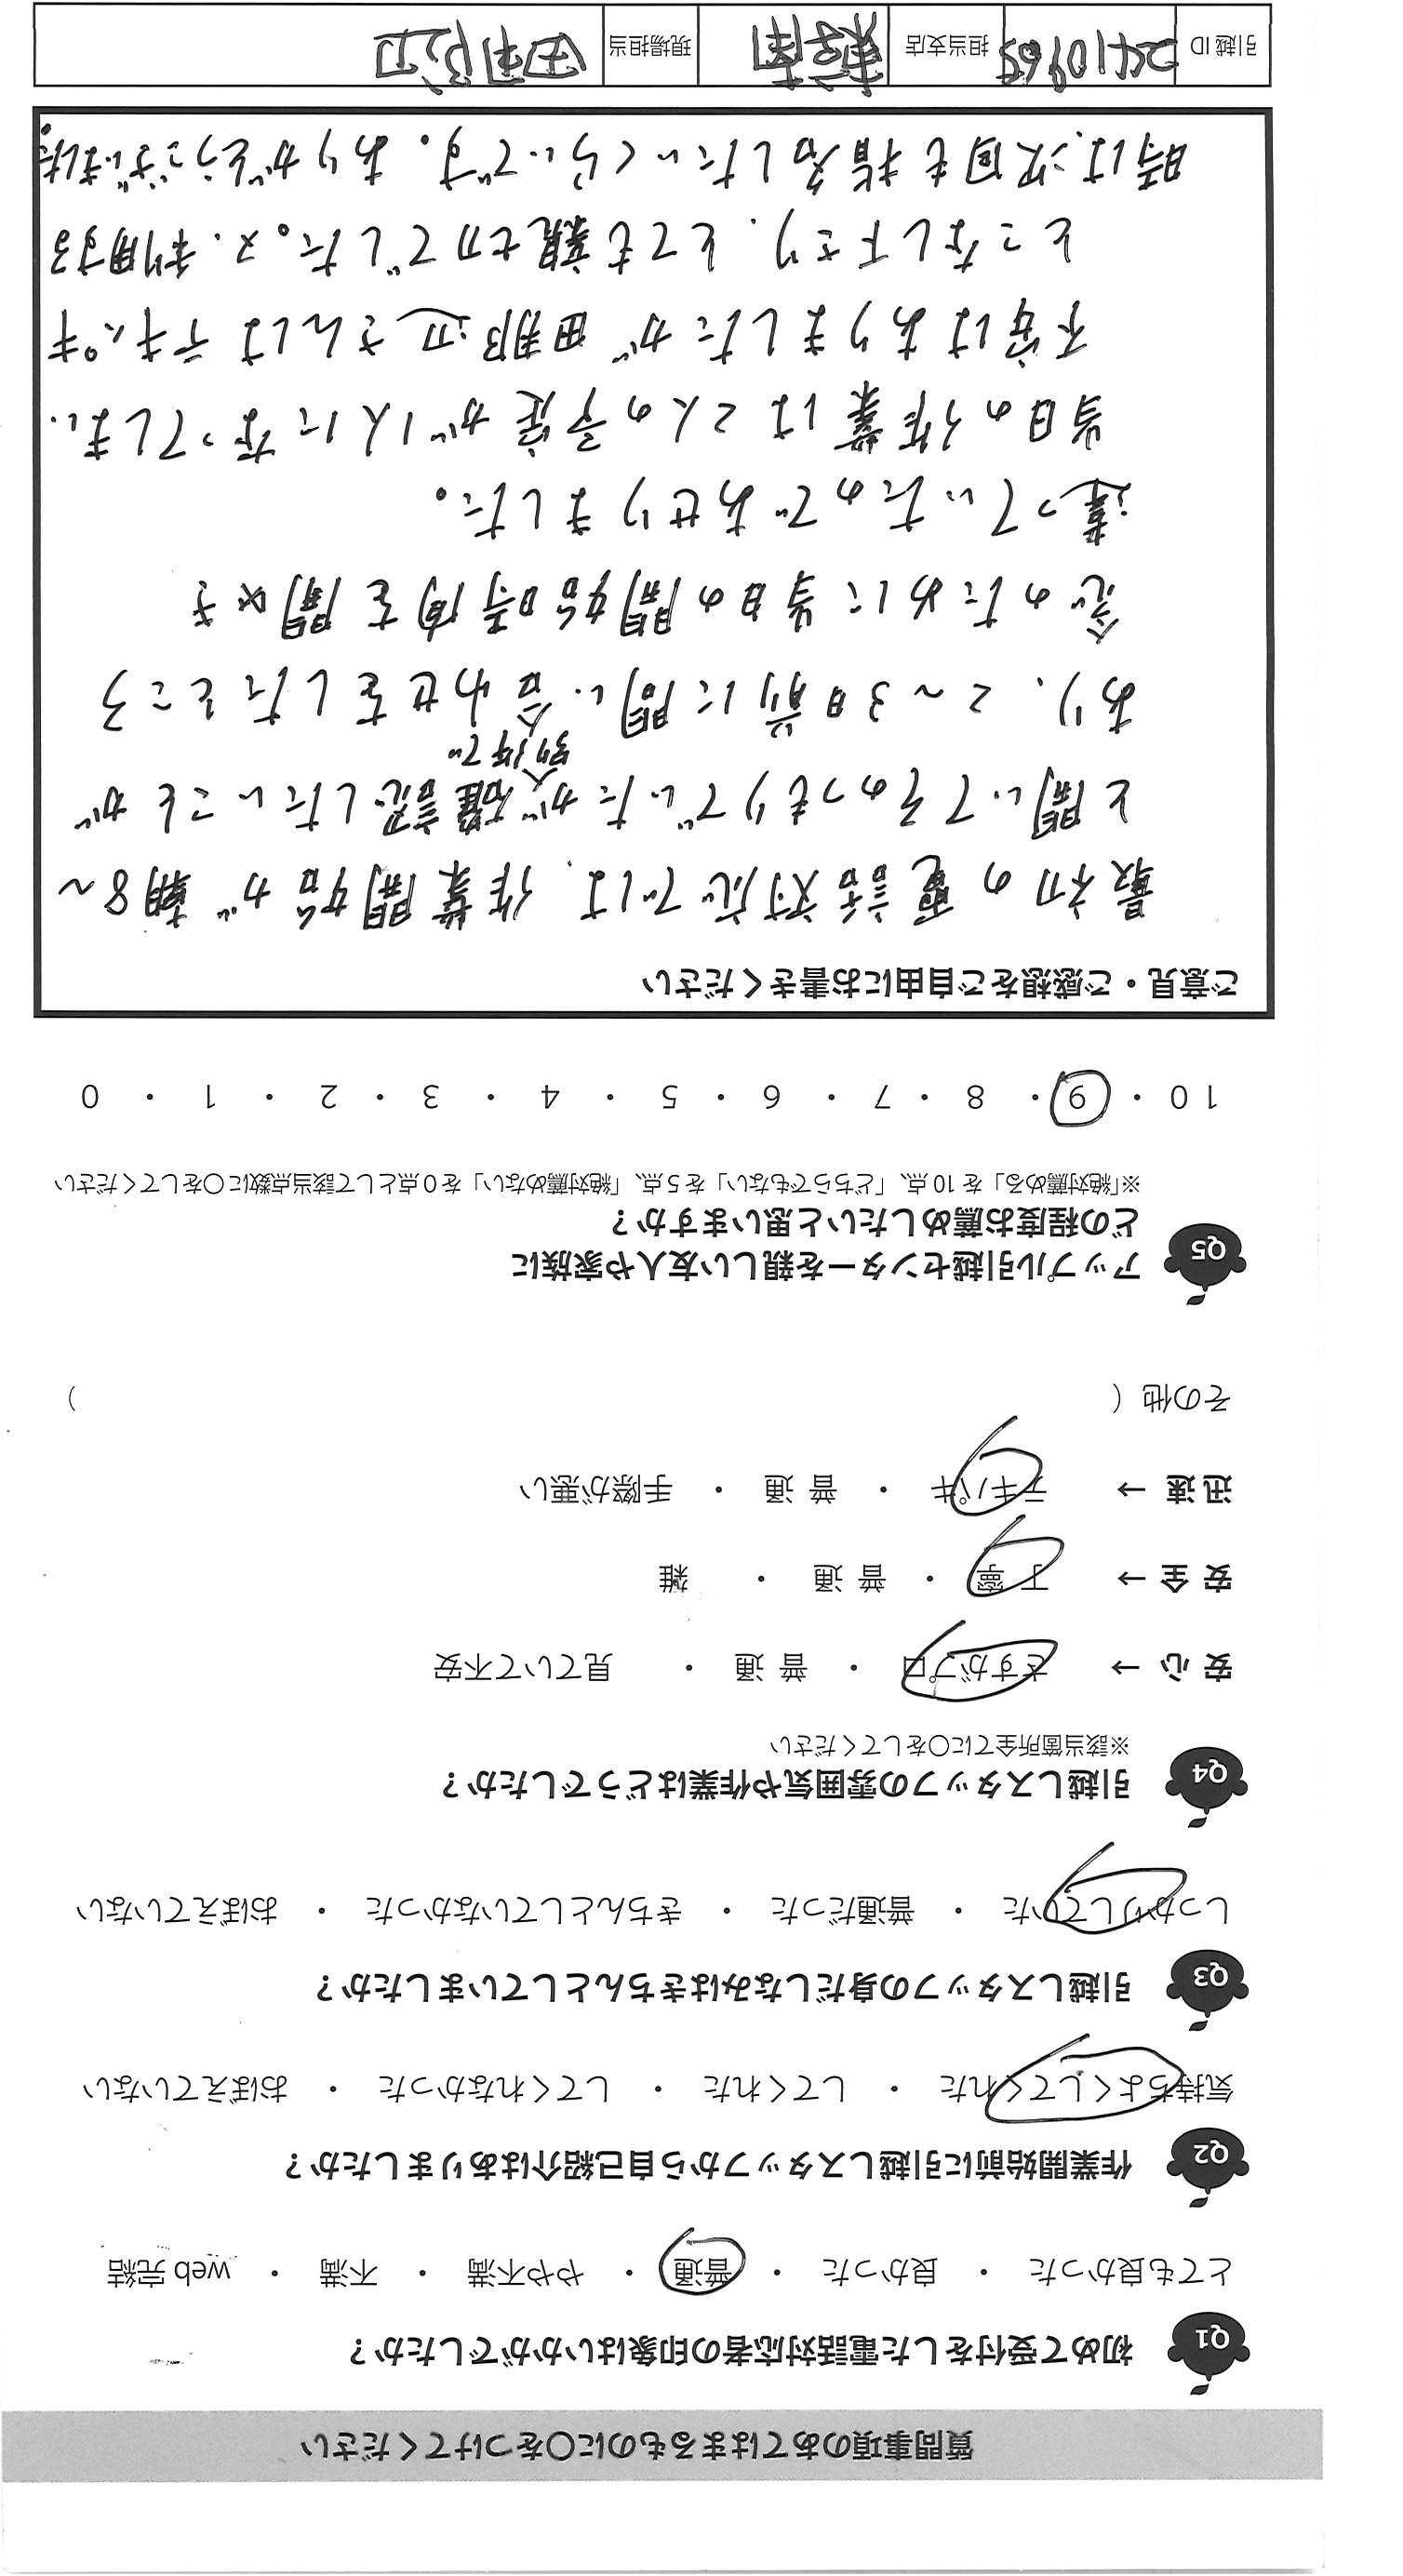 質問事項のあてはまるものに○をつけてください
Q1 初めて受付をした電話対応者の印象はいかがでしたか？
とても良かった ・ 良かった ・ 普通 ・ やや不満 ・ 不満 ・ web 完結
Q2 作業開始前に引越しスタッフから自己紹介はありましたか？
気持ちよくしてくれた ・ してくれた ・ してくれなかった ・ おぼえていない
Q3 引越しスタッフの身だしなみはきちんとしていましたか？
しっかりしていた ・ 普通だった ・ きちんとしていなかった ・ おぼえていない
Q4 引越しスタッフの雰囲気や作業はどうでしたか？
※該当箇所全てに○をしてください
安 心 → さすがプロ ・ 普 通 ・ 見ていて不安
安 全 → 丁 寧 ・ 普 通 ・ 雑
迅 速 → テキパキ ・ 普 通 ・ 手際が悪い
その他（ ）
Q5 アップル引越センターを親しい友人や家族に
どの程度お薦めしたいと思いますか？
※「絶対薦める」を 10 点、「どちらでもない」を 5 点、「絶対薦めない」を 0 点として該当点数に○をしてください
10 ・ 9 ・ 8 ・ 7 ・ 6 ・ 5 ・ 4 ・ 3 ・ 2 ・ 1 ・ 0
ご意見・ご感想をご自由にお書きください
最初の電話対応では、作業開始が朝8～
と聞いてそのつもりでいたが確認したいことが
別件で
あり、2～3日前に問い合わせをしたところ
念のために当日の開始時間を聞くき
違っていたのであせりました。
当日の作業は2人の予定が1人になってしまい
不安はありましたが田那辺さんはテキパキ
とこなし下さり、とても親切でした。又、利用する
時は次回も指名したいくらいです。ありがとうございました。
引越 ID 24110965 担当支店 東京南 現場担当 田那辺